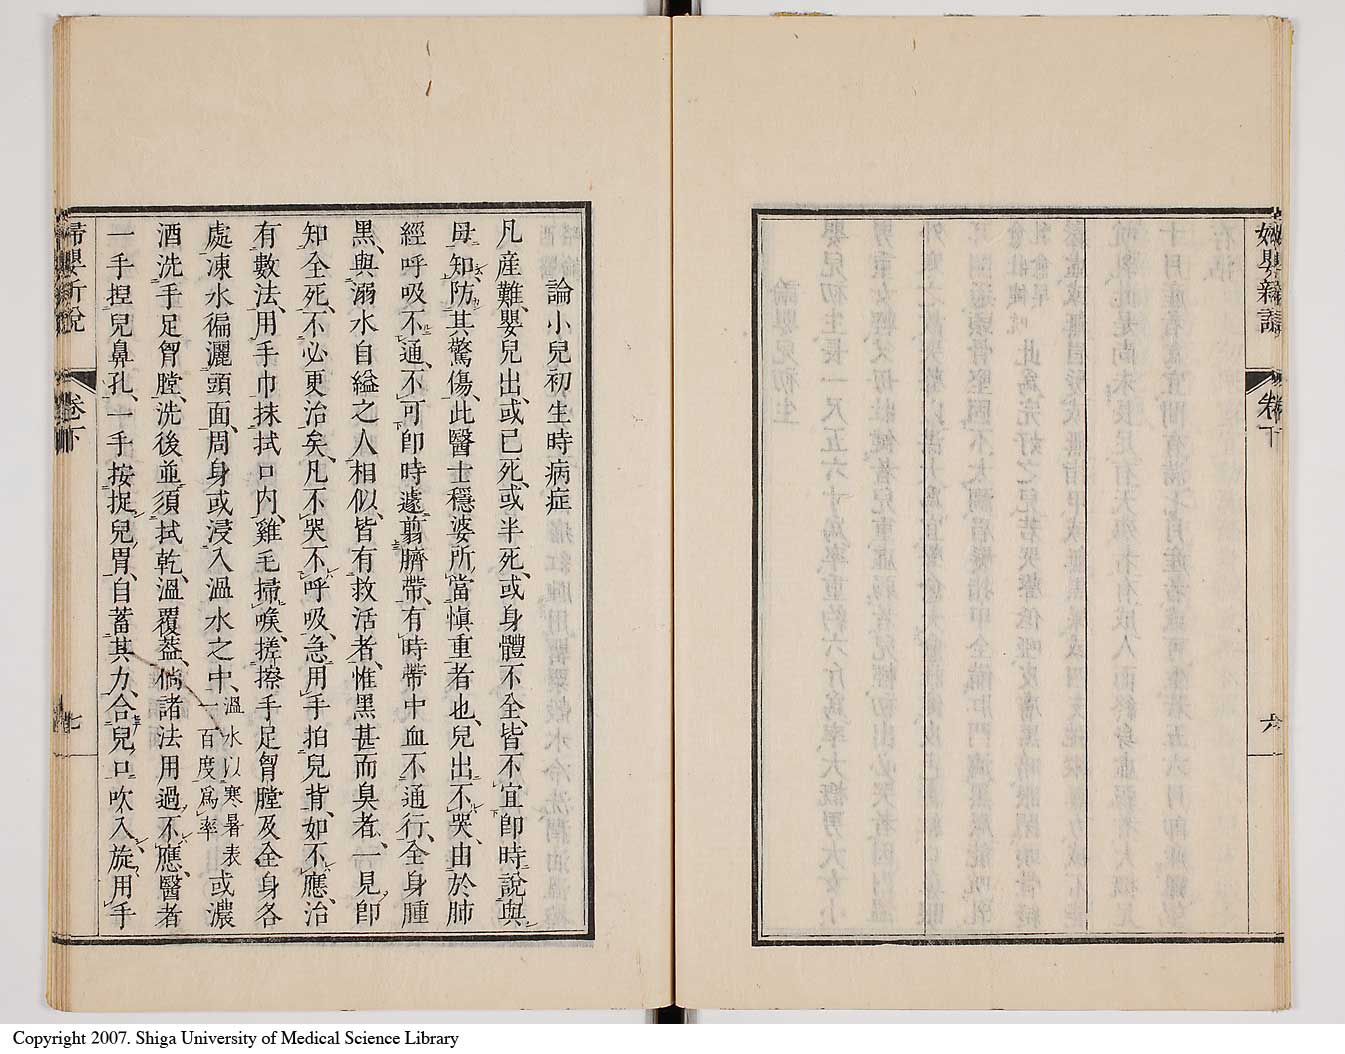 婦嬰新說
卷下
六
論小兒初生時病症
凡產難、嬰兒出、或已死、或半死、或身體不全、皆不宜卽時說與
母知、防其驚傷、此醫士穩婆所當愼重者也、兒出不哭、由於肺
經呼吸不通、不可卽時遽翦臍帶、有時帶中血不通行、全身腫
黑、與溺水自縊之人相似、皆有救活者、惟黑甚而臭者、一見卽
知全死、不必更治矣、凡不哭不呼吸、急用手拍兒背、如不應、治
有數法、用手巾抹拭口内、雞毛掃喉、搓擦手足胷膛及全身各
處、凍水徧灑頭面、周身或浸入溫水之中、溫水以寒暑表一百度爲率或濃
酒洗手足胷膛、洗後並須拭乾、溫覆蓋、倘諸法用過不應、醫者
一手揑兒鼻孔、一手按捉兒胃、自蓄其力、合兒口吹入、旋用手
婦嬰新說
卷下
七
Copyright 2007. Shiga University of Medical Science Library